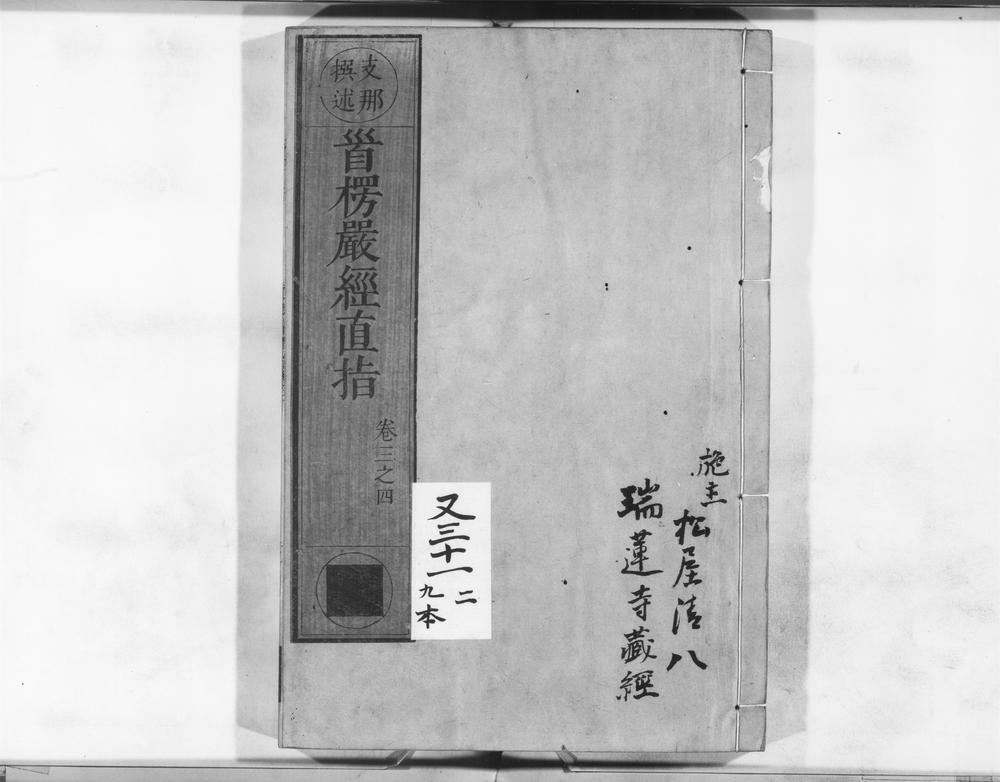 支那
撰述
首楞嚴經直指
卷三之四
施主
松屋清八
瑞蓮寺藏經
又三十一
二
九本